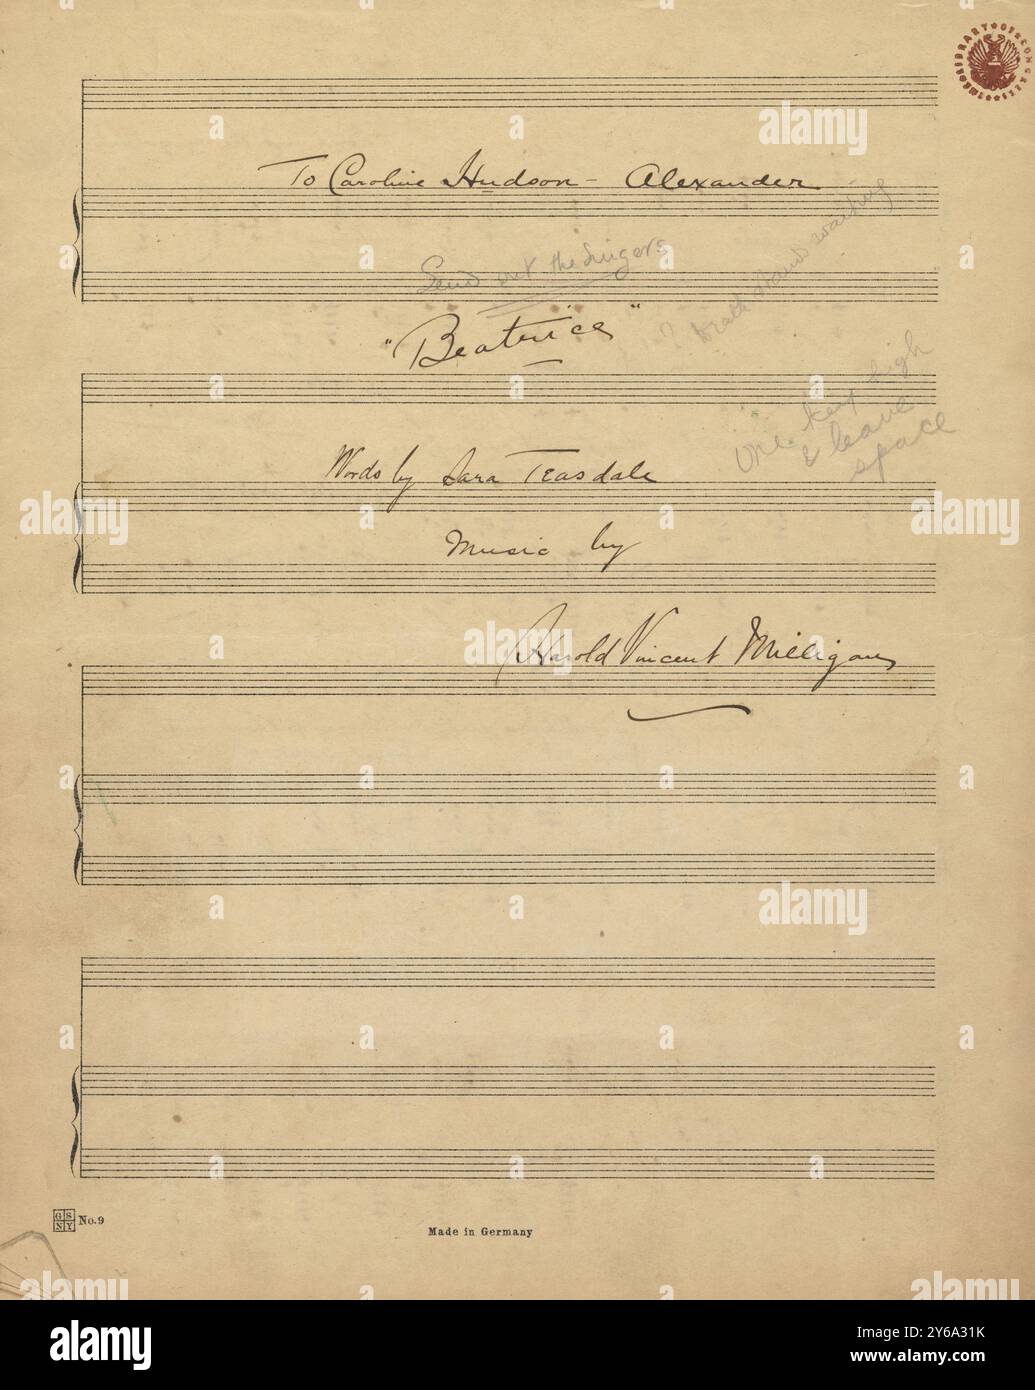 THE LIBRARY OF CONGRESS
To Caroline Hudson - Alexander
Send out the Singers
waiting
"Beatrice"
One key high
& leave
space
Words by Sara Teasdale
Music by
Harold Vincent Milligan
G S
N Y
No. 9
Made in Germany
alamy
Image ID: 2Y6A31K
www.alamy.com